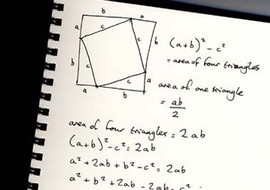 b a
a c c b
b c c a
a b
(a+b)² - c²
= area of four triangles
area of one triangle
= ab/2
area of four triangles = 2ab
(a+b)² - c² = 2ab
a² + 2ab + b² - c² = 2ab
a² + b² + 2ab - 2ab = c²